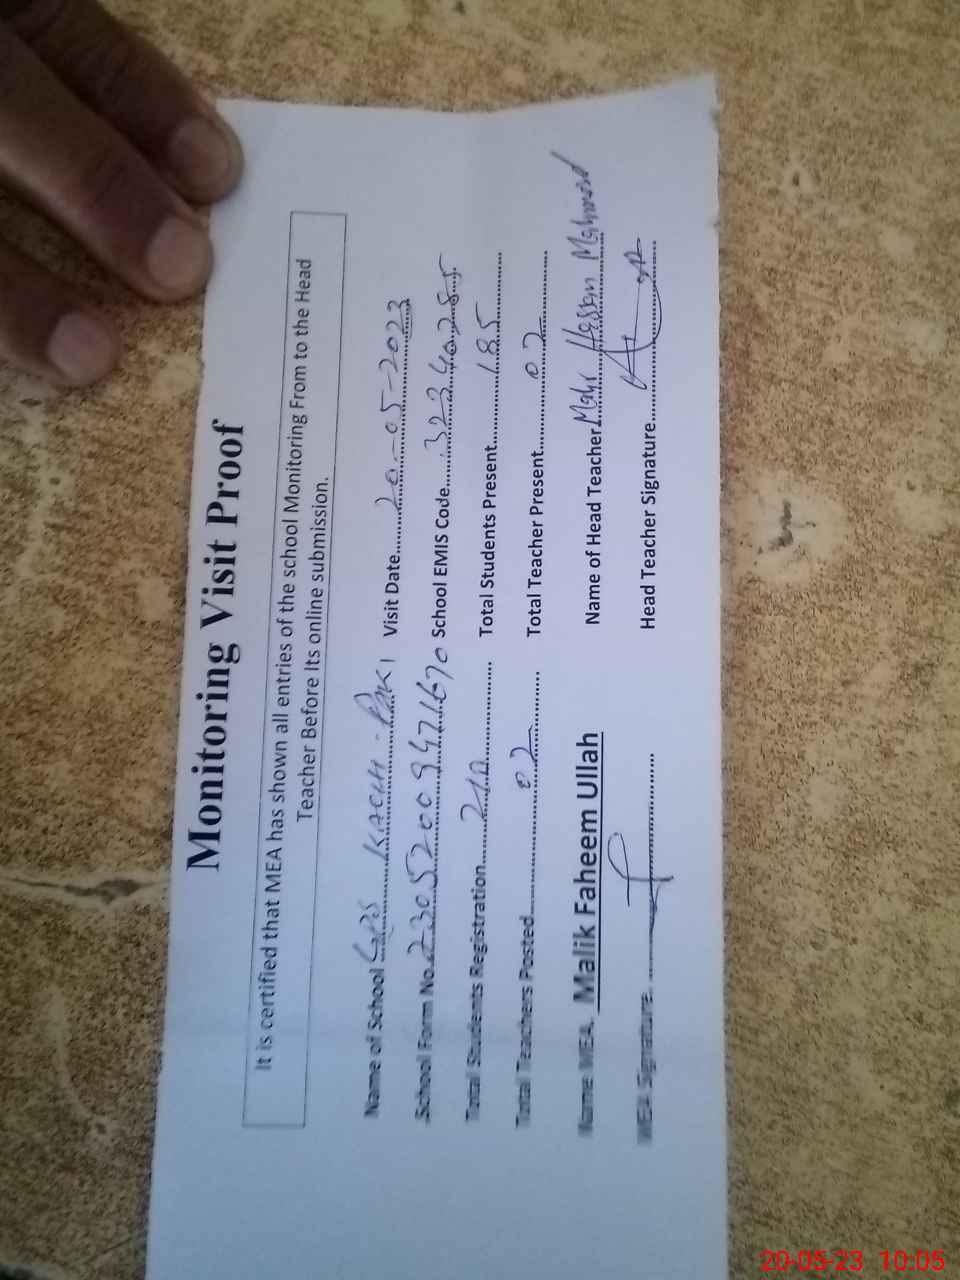 Monitoring Visit Proof
It is certified that MEA has shown all entries of the school Monitoring From to the Head
Teacher Before Its online submission.
Name of School GPS KACHI-PAKI Visit Date 20-05-2023
School Form No. 23052009471670 School EMIS Code 32340285
Total Students Registration 210 Total Students Present 185
Total Teachers Posted 02 Total Teacher Present 02
Name MEA. Malik Faheem Ullah Name of Head Teacher Mahr Hassan Mahmood
MEA Signature. Head Teacher Signature
20-05-23 10:05